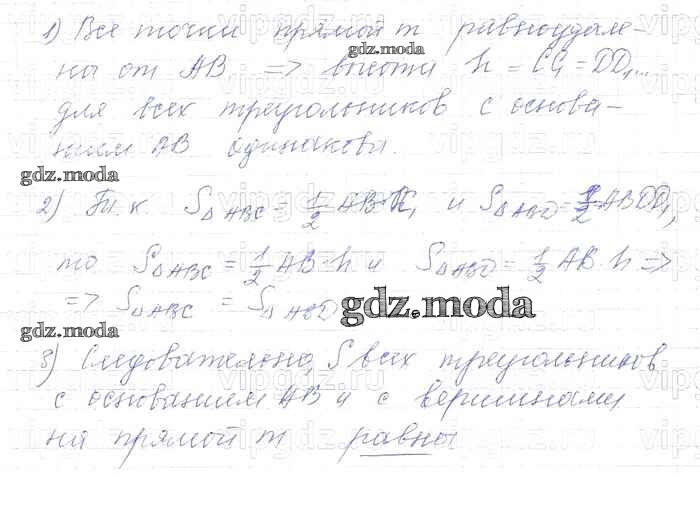 1) Все точки прямой m равноудале-
gdz.moda
ны от AB, => высоты h = CC₁ = DD₁...
для всех треугольников с основа-
нием AB одинаковы.
gdz.moda
2) Т.к. S△ABC = 1/2 AB·CC₁ и S△ABD = 1/2 AB·DD₁,
то S△ABC = 1/2 AB·h и S△ABD = 1/2 AB·h =>
=> S△ABC = S△ABD
gdz.moda
gdz.moda
3) Следовательно, S всех треугольников
с основанием AB и с вершинами
на прямой m равны